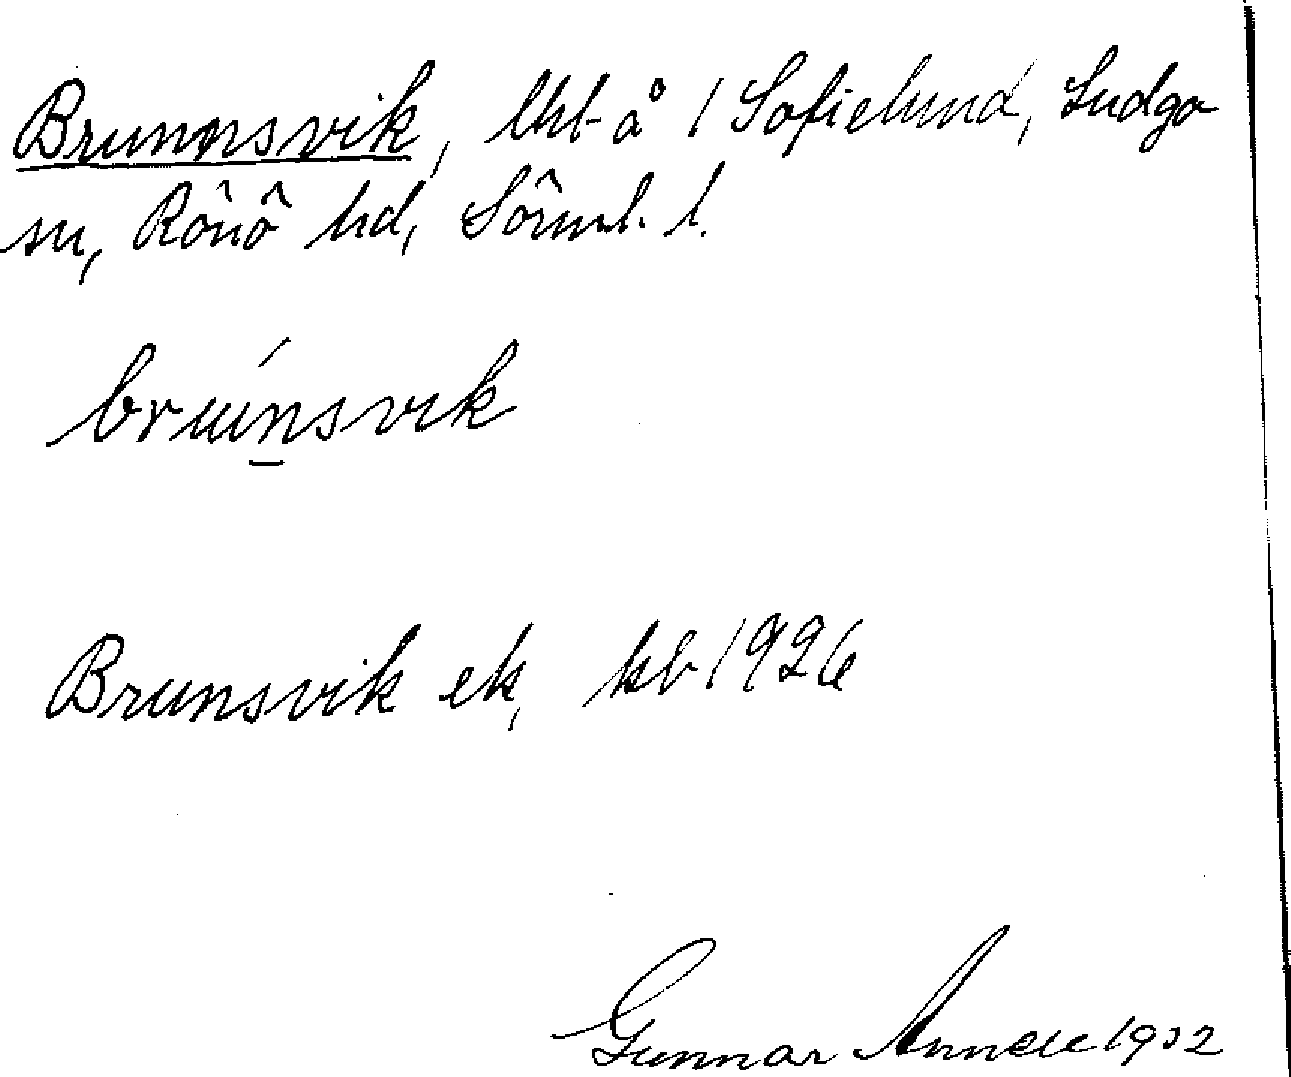 Brunnsvik, lht å 1 Sofielund, Ludgo
sn, Rönö hd, Sörml. l.
bruńsvik
Brunsvik ek, kb 1926
Gunnar Annell 1932